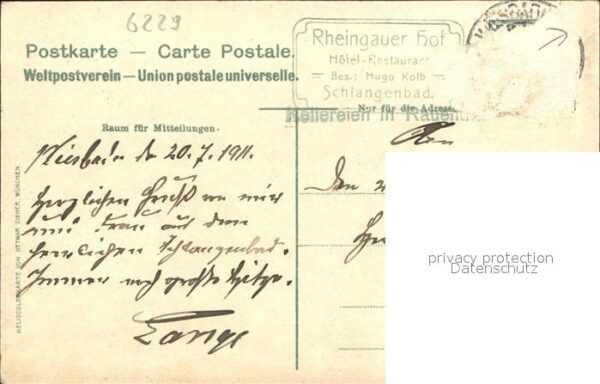 6229
Postkarte — Carte Postale.
Weltpostverein — Union postale universelle.
Rheingauer Hof
Hôtel-Restaurant
Bes.: Hugo Kolb
Schlangenbad.
Nur für die Adresse
Kellereien in Rauen
Raum für Mitteilungen.
Wiesbaden de 20.7.1911.
Herzlichen Gruß von mir
und Frau aus dem
herrlichen Schlangenbad.
Immer noch große Hitze.
Lange
An
HELIOCOLORKARTE VON OTTMAR ZIEHER, MÜNCHEN
privacy protection
Datenschutz